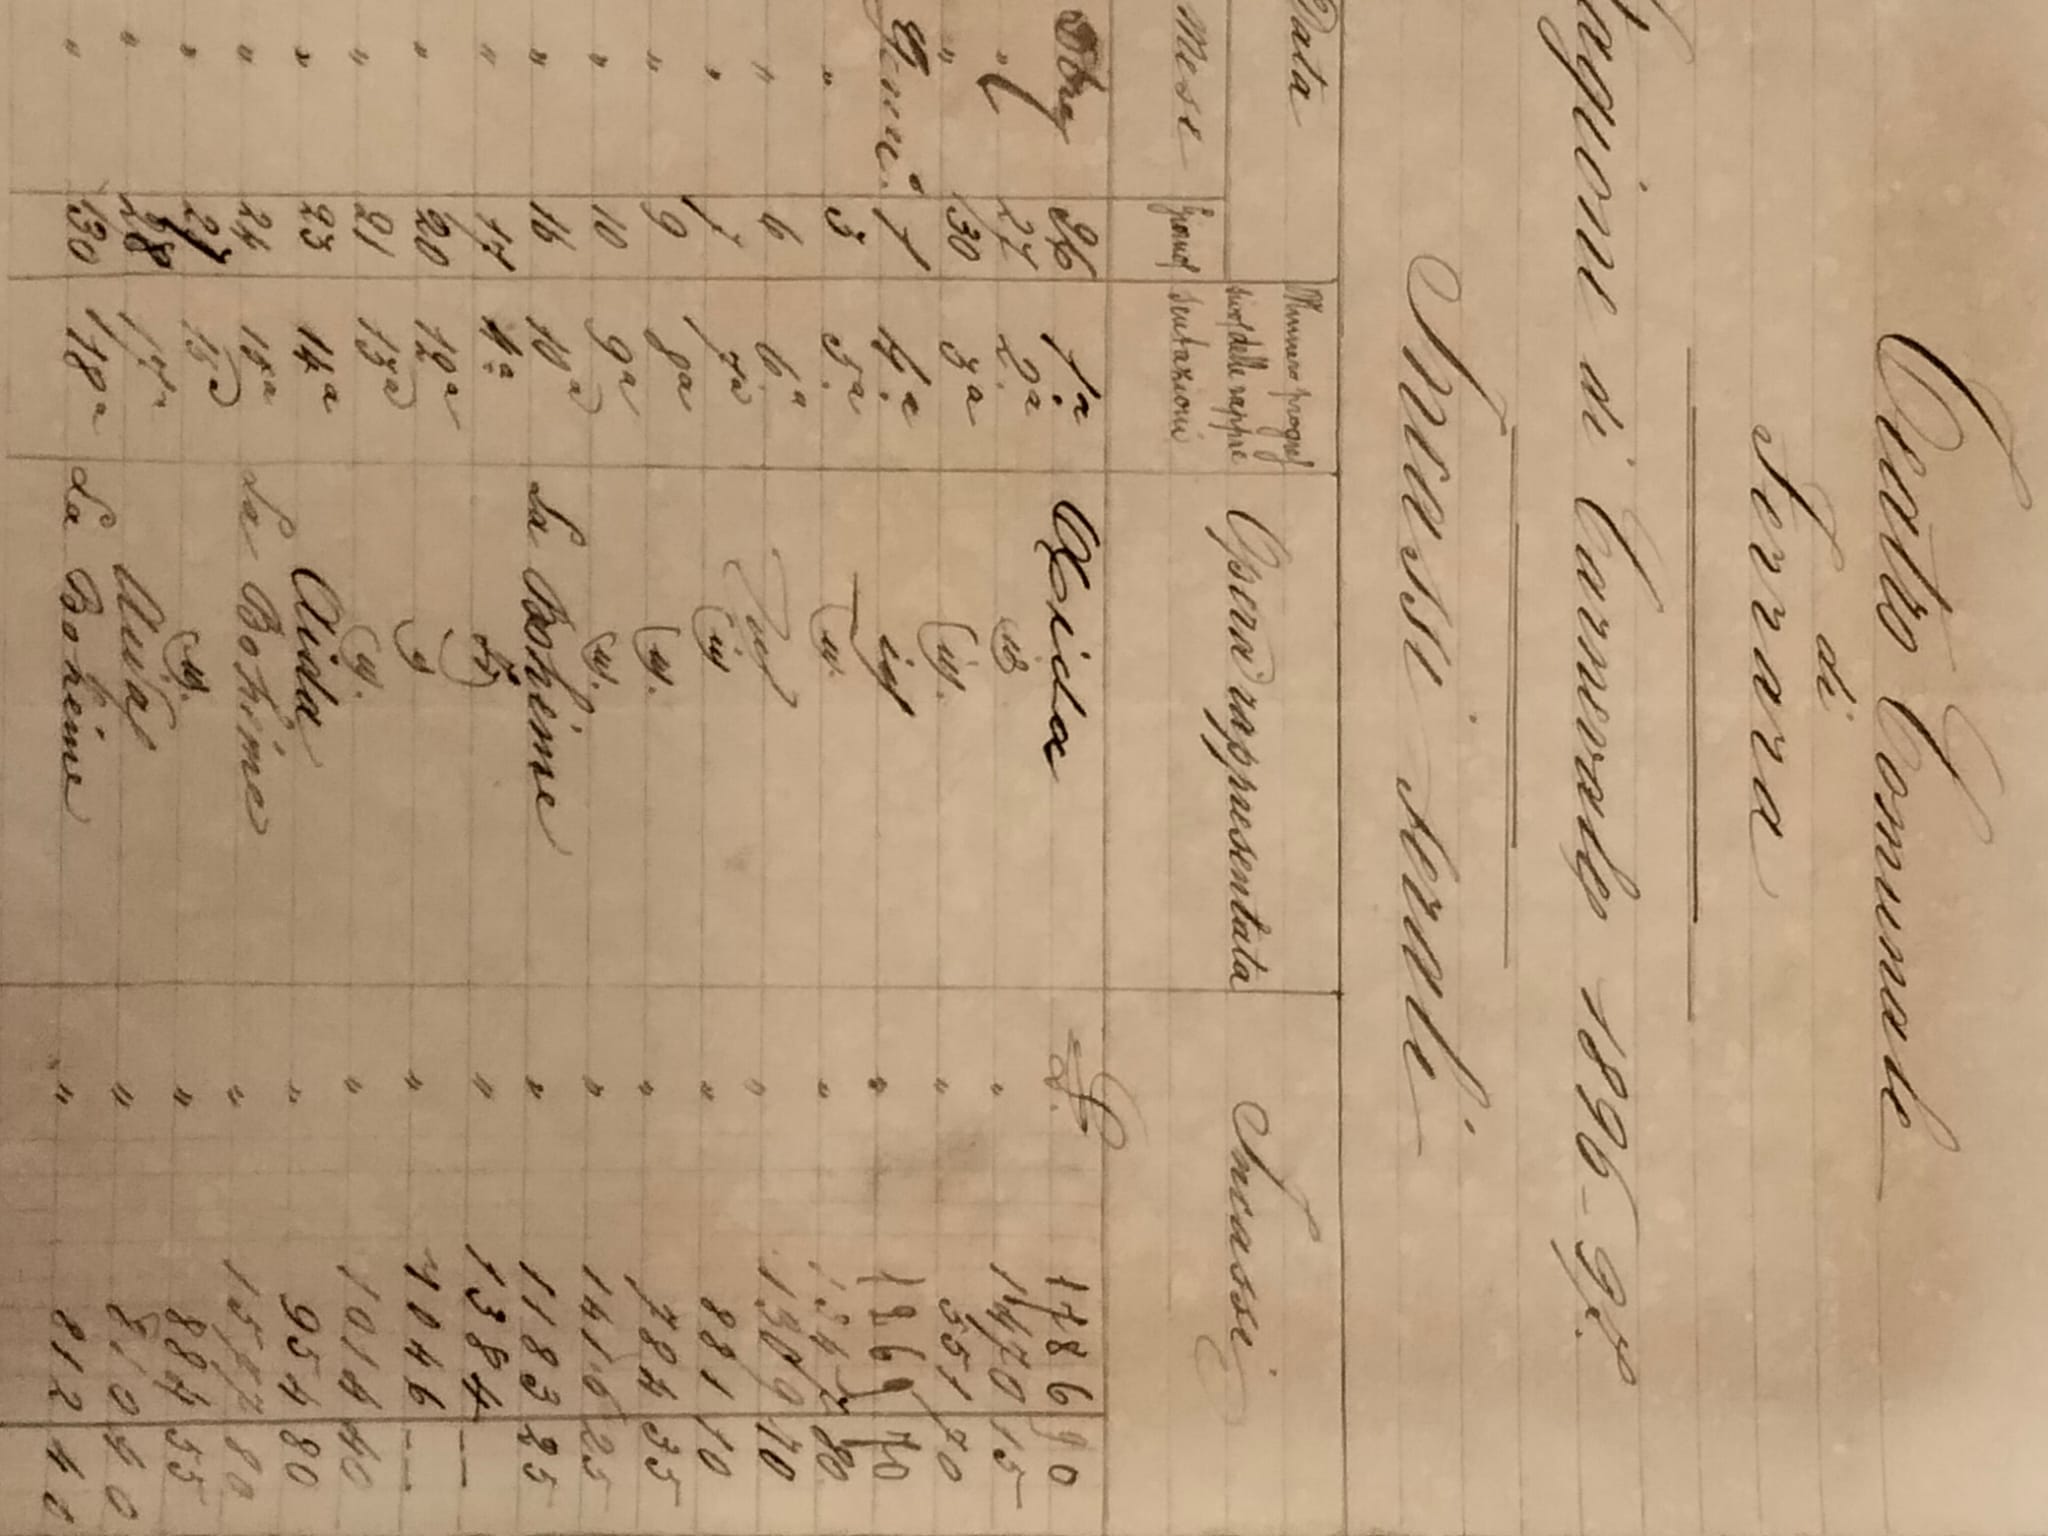 Teatro Comunale
di
Ferrara
Stagione di Carnevale 1896-97
Incassi serali
Data
Mese Giorno
Numero progres
sivo delle rappre
sentazioni
Opera rappresentata
Incassi
Xbre 26 1.a Aida L. 1786 90
" 27 2.a id " 1470 15
" 30 3a id. " 551 70
Genn.o 1 4.a id " 1869 70
" 3 5.a id. " 80
" 6 6.a " 1309 70
" 7 7a id " 881 10
" 9 8a id. " 784 35
" 10 9a id. " 1416 25
" 16 10a La Bohème " 1183 25
" 17 " 1384 --
" 20 12a " 1046 --
" 21 13a id. " 1014 40
" 23 14a Aida " 954 80
" 24 La Bohème " 80
" 27 id. " 884 55
" 28 17a Aida " 40
" 30 18a La Bohème " 812 40